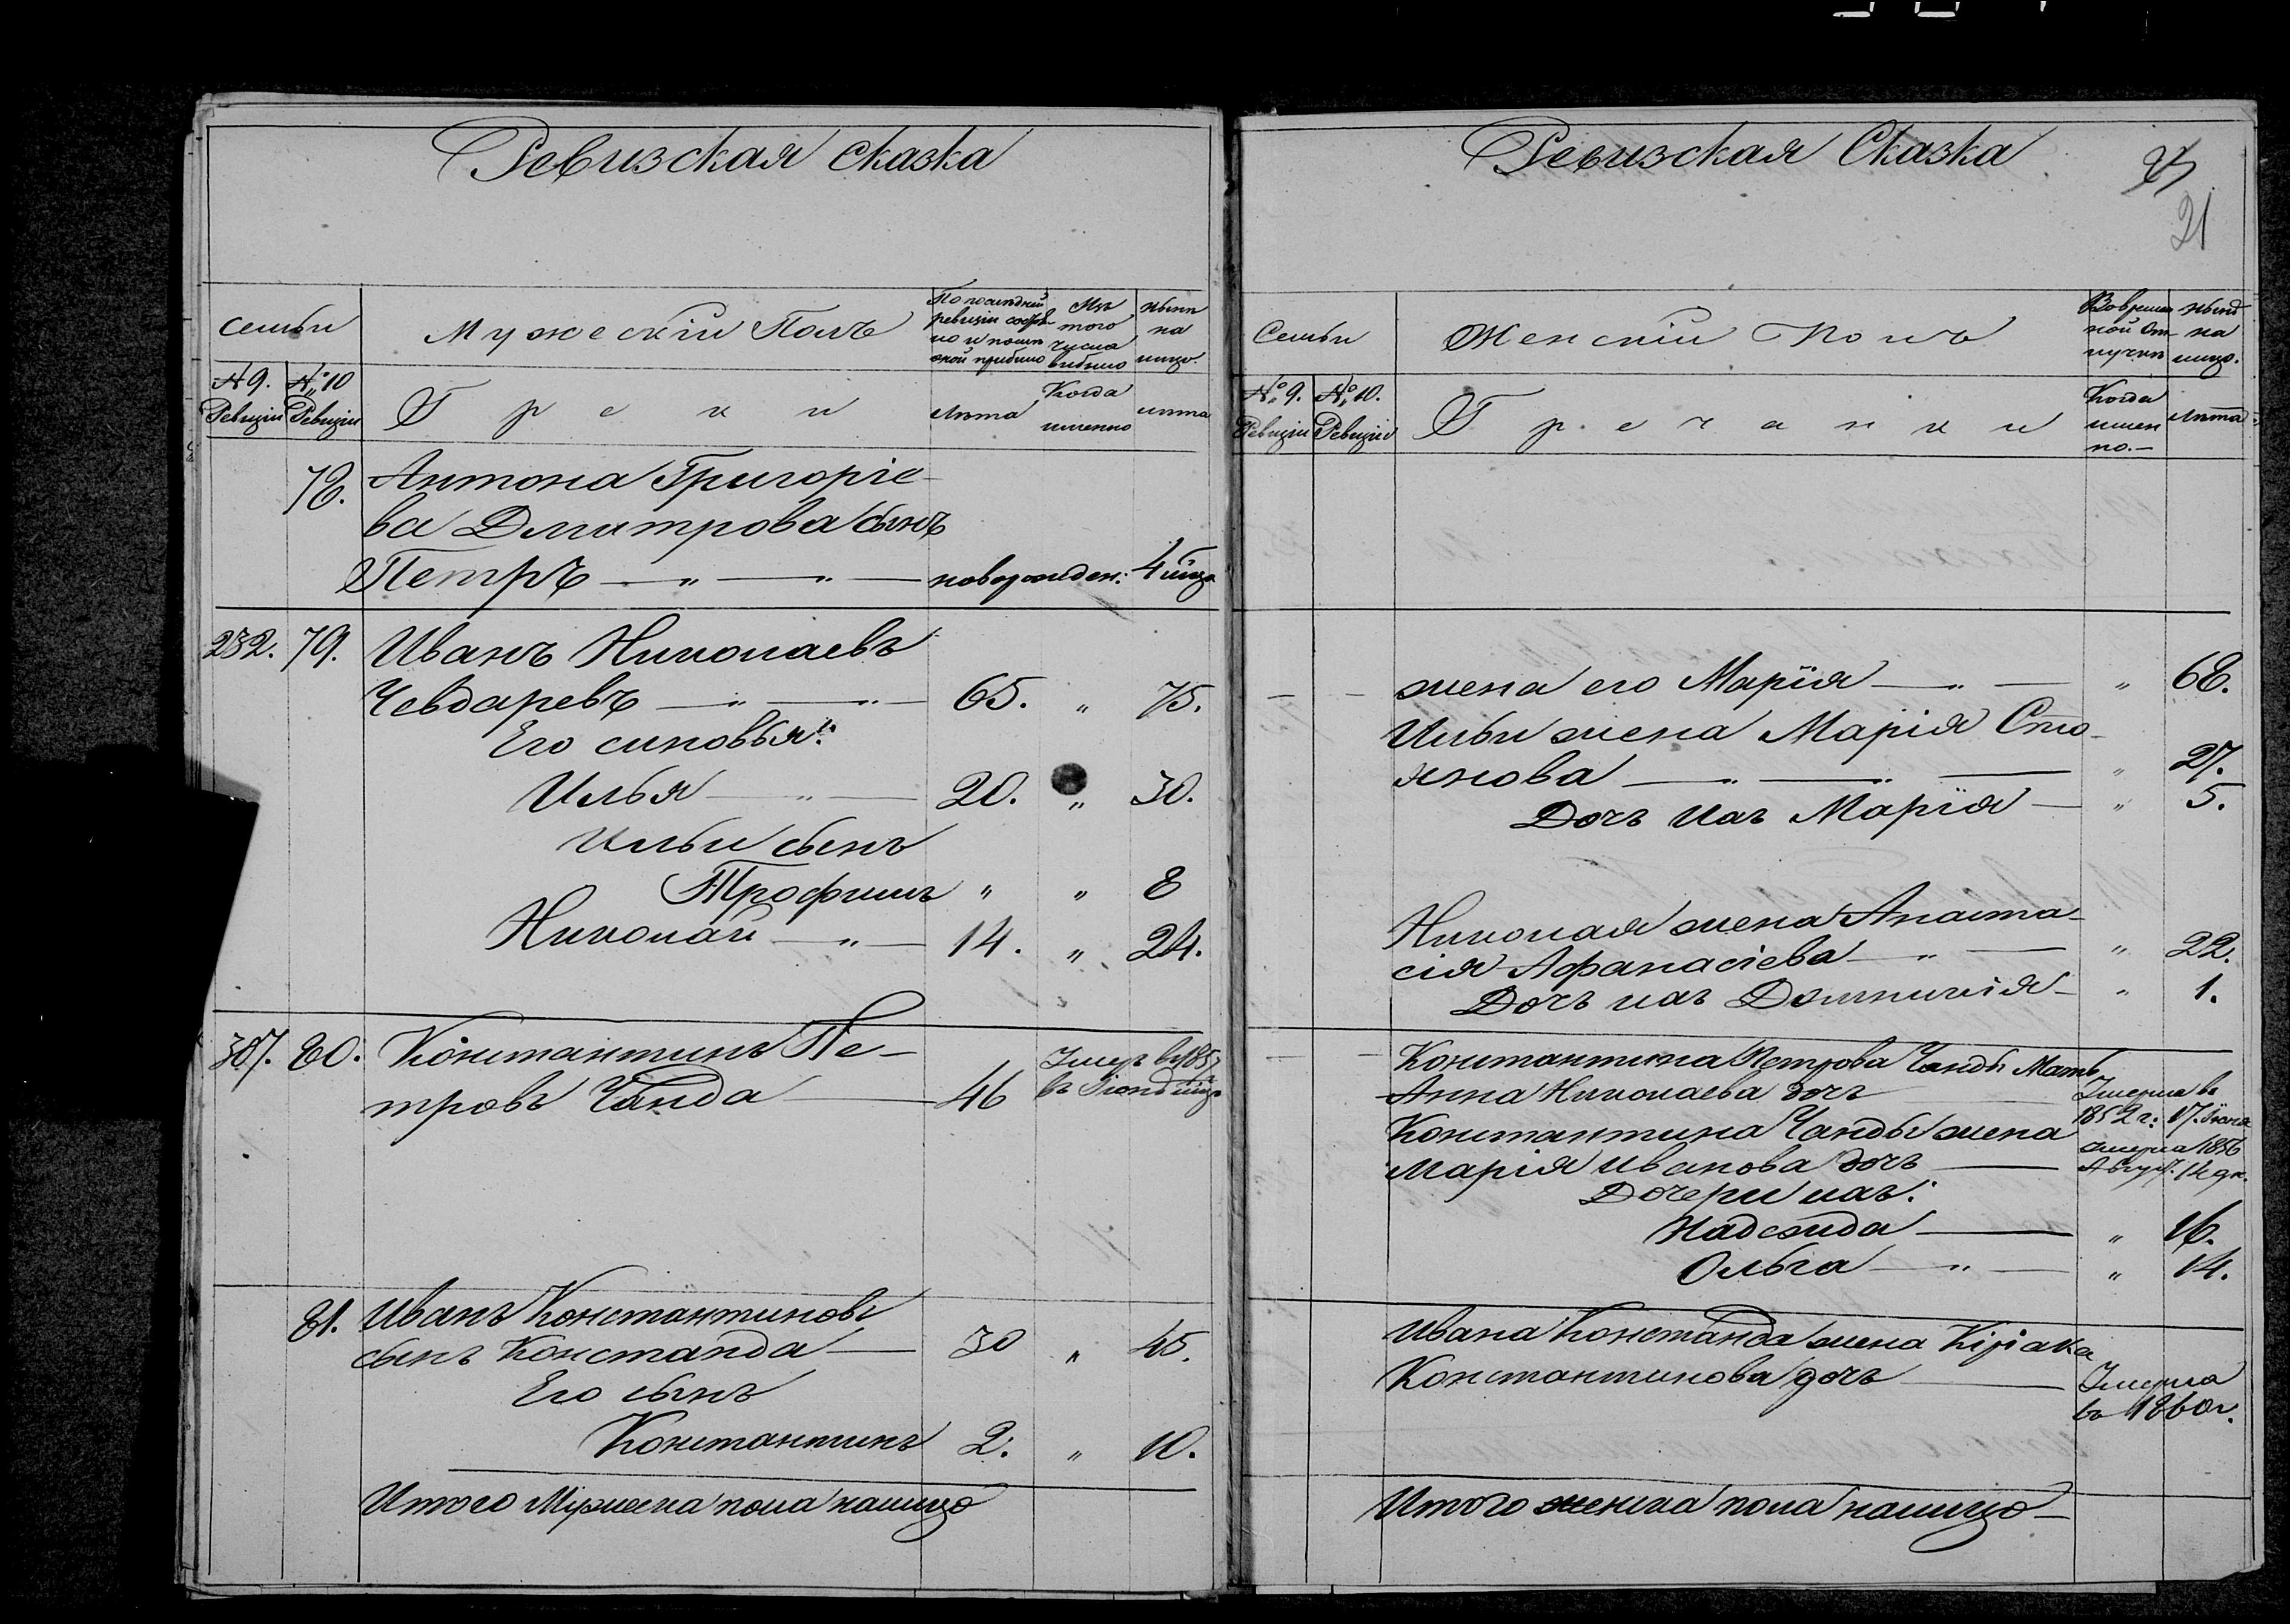 Ревизская Сказка
семьи
Мужескій Полъ
По последней
ревизіи состоя-
но и после
оной прибыло
Изъ
того
числа
выбыло
ныне
на
лицо.
№ 9.
Ревизіи
№ 10
Ревизіи
Греки
лѣта
Когда
именно
лѣта
78. Антона Григоріе-
ва Дмитрова сынъ
Петръ — " — " — новорожден: 4
232. 79. Иванъ Николаевъ
Чевдаревъ — " — " — 65. " 75.
Его синовья:
Илья — " — 20. " 30.
Ильи сынъ
Трофимъ " " 8
Николай — " — 14. " 24.
307. 80. Константинъ Пе-
тровъ Чанда — 46 Умеръ в 1857
81. Иванъ Константиновъ
сынъ Констанда — 30 " 45.
Его сынъ
Константинъ 2. " 10.
Итого Мужеска пола налицо
Ревизская Сказка
21
Семьи
Женскій Полъ
Во времен-
ной От-
лучки
ныне
на
лицо.
№ 9.
Ревизіи
№ 10.
Ревизіи
Гречанки
Когда
имен
но.—
лѣта
жена его Марія — " — " 68.
Ильи жена Марія Сто-
янова — " — " — " 27.
Дочъ ихъ Марія — " 5.
Николая жена Анаста-
сія Афанасіева — " — " 22.
Дочъ ихъ Домникія — " 1.
Константина Петрова Чанды Мать
Анна Николаева дочъ — Умерла в
1852 г: 17. Іюля
Константина Чанды жена
Марія Иванова дочъ — умерла 1856
Август. 14 дн.
Дочери ихъ:
Надежда — " 16.
Ольга — " — " 14.
Ивана Констанда жена Кіріака
Константинова дочъ — Умерла
въ 1860 г.
Итого женска пола налицо —